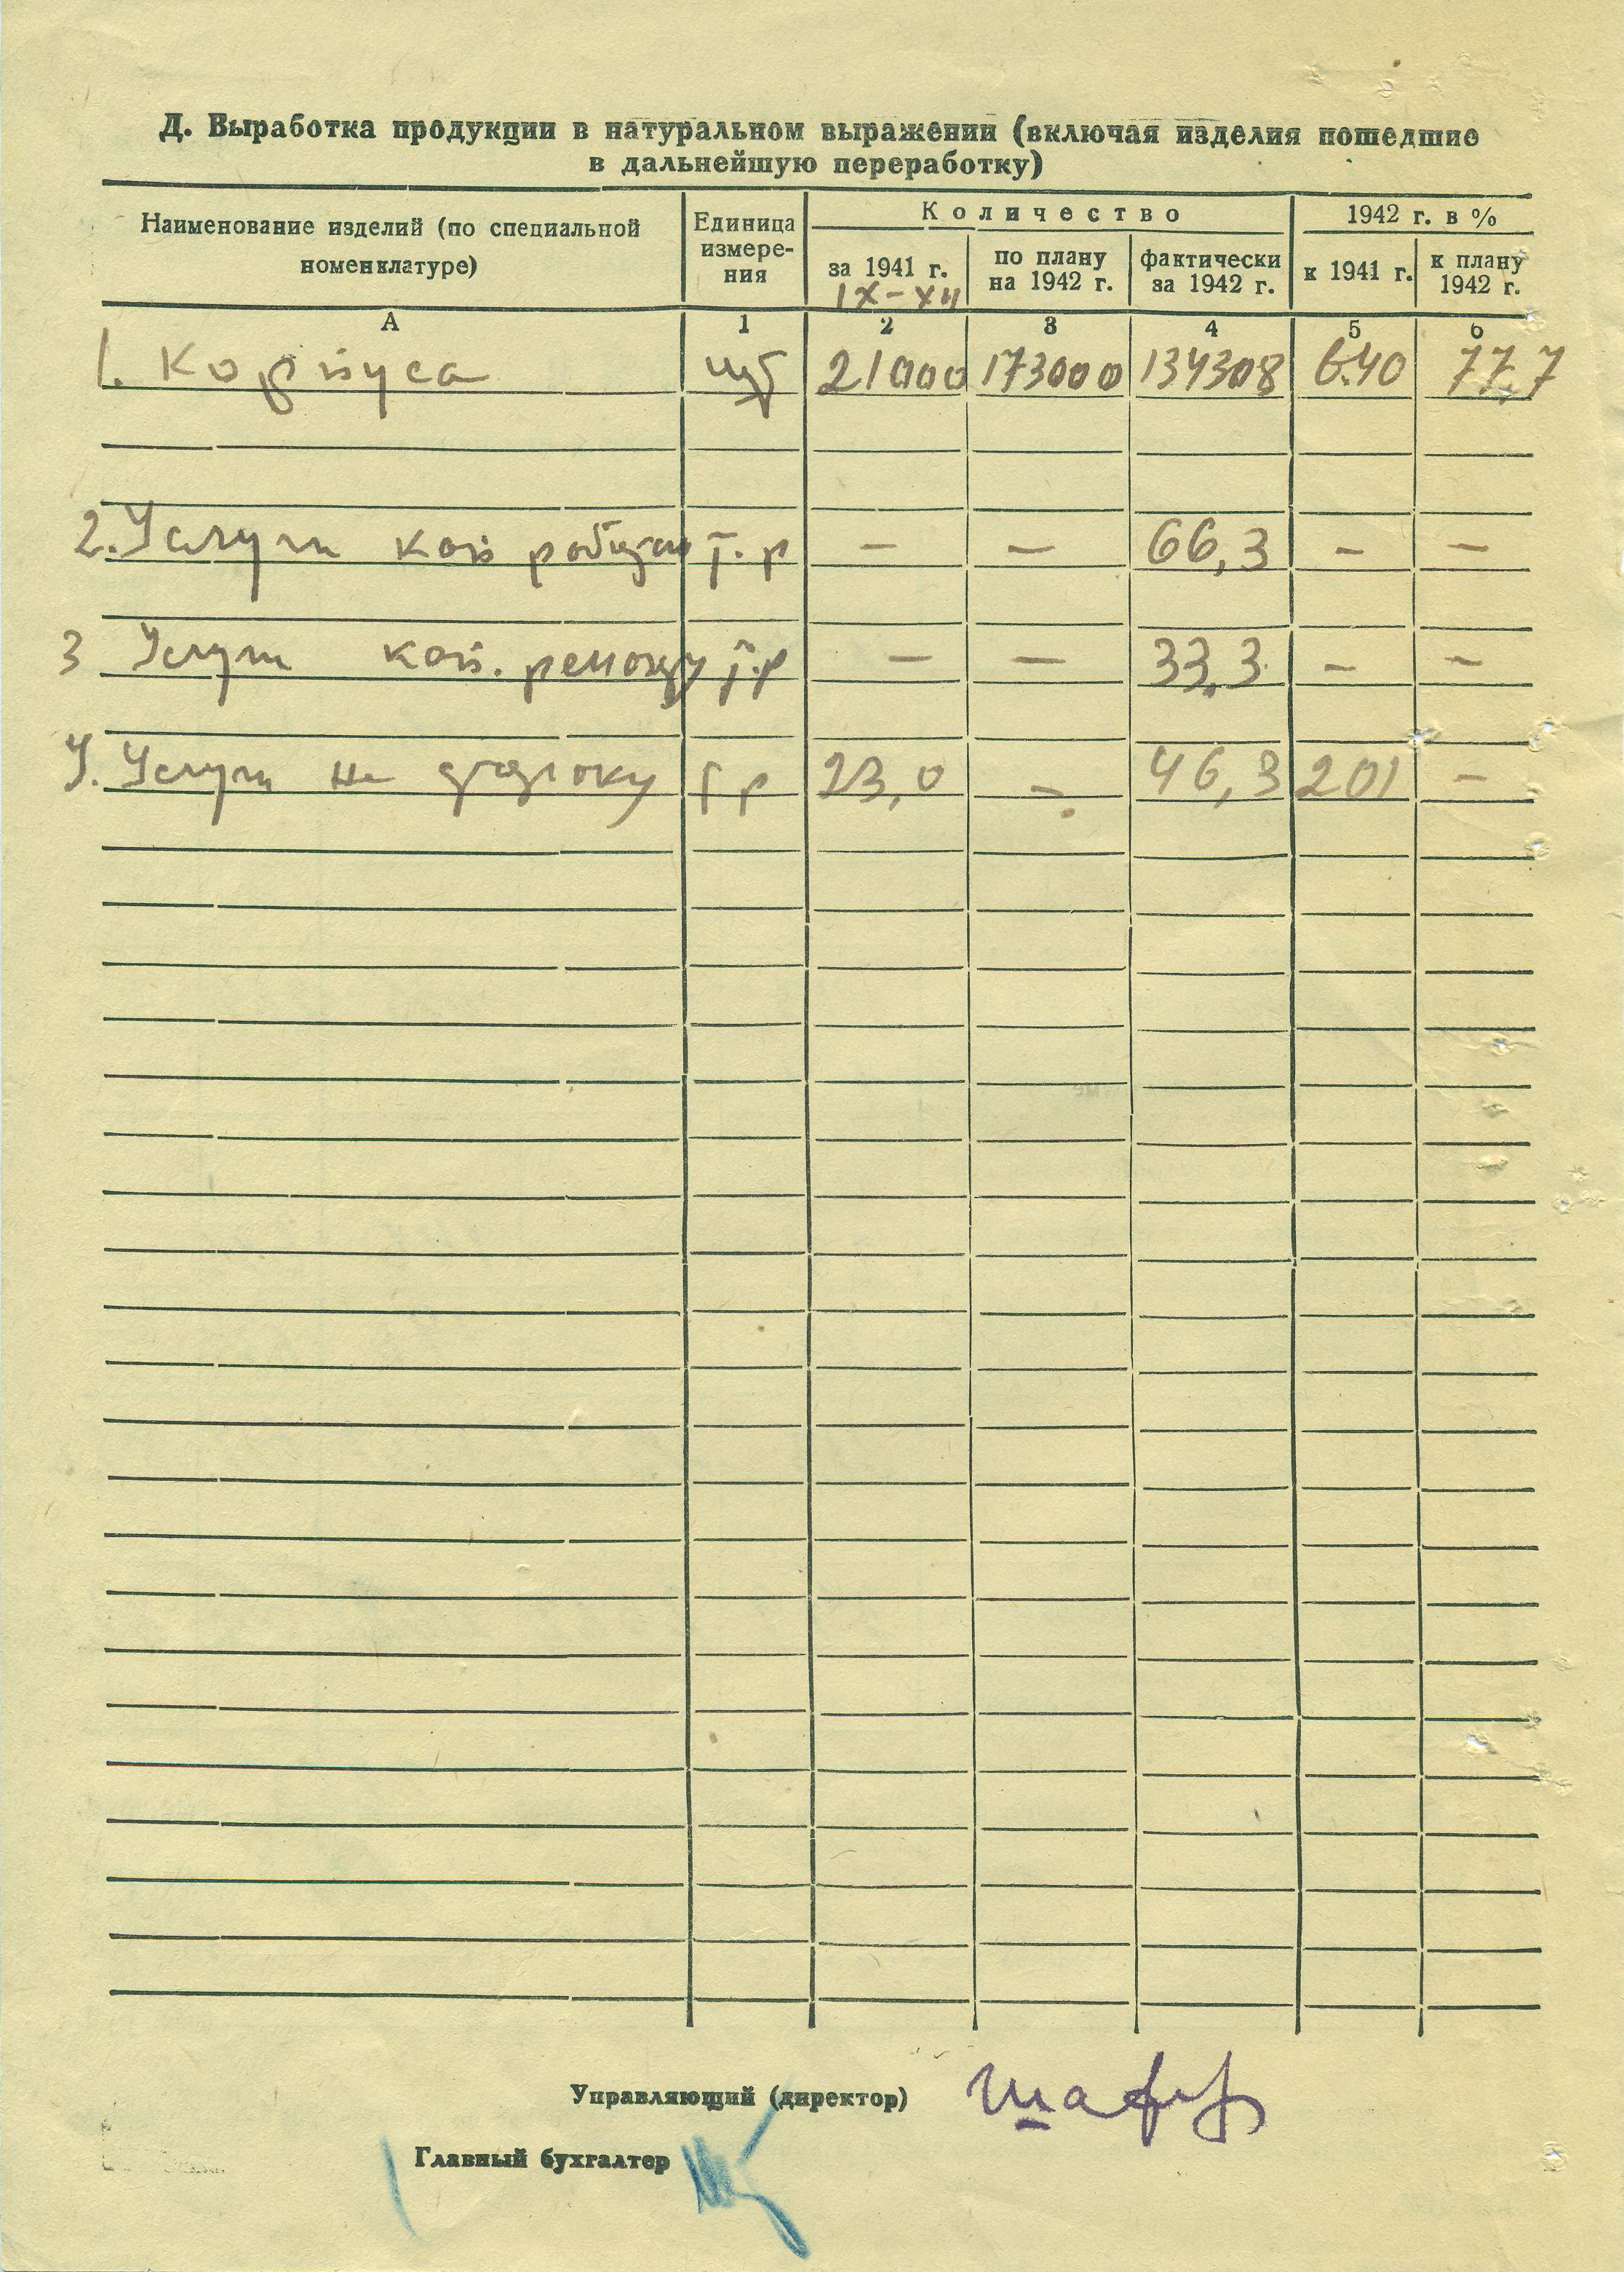 Д. Выработка продукции в натуральном выражении (включая изделия пошедшие
в дальнейшую переработку)
Наименование изделий (по специальной номенклатуре)
Единица измерения
Количество
1942 г. в %
за 1941 г.
IX–XII
по плану на 1942 г.
фактически за 1942 г.
к 1941 г.
к плану 1942 г.
А 1 2 3 4 5 6
1. Корпуса шт 21000 173000 134308 6.40 77,7
2. Услуги кап т.р – – 66,3 – –
3 Услуги кап. ремонту т.р – – 33,3 – –
4. Услуги на т р 23,0 – 46,3 201 –
Управляющий (директор)
Главный бухгалтер